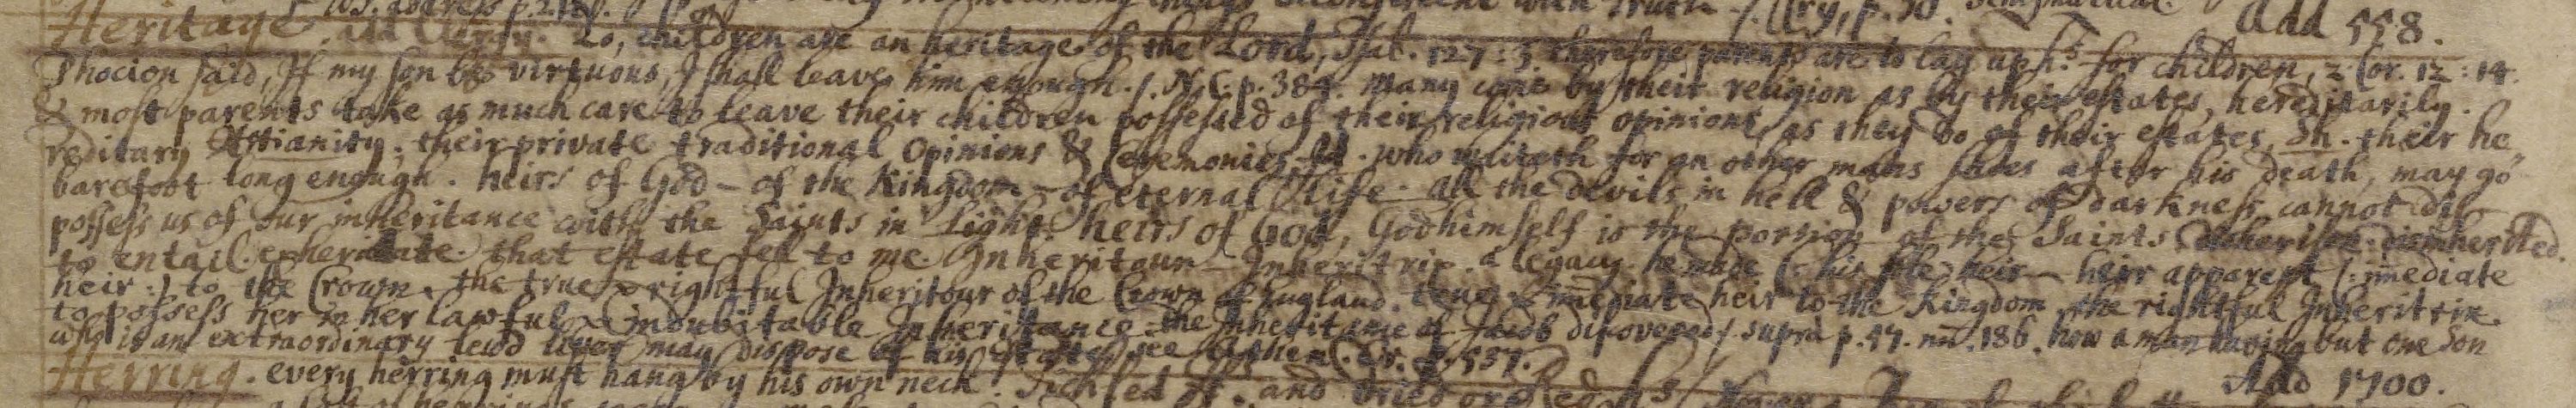 Heritage. add Clergy. 20, children are an heritage of the Lord, Psal. 127:3. therefore parents are to lay up for children, 2 Cor. 12:14. Add 558.
Phocion said, If my son be virtuous, I shall leave him enough./. N.C. p. 384. many come by their religion as by their estates, hereditarily.
& most parents take as much care to leave their children possessed of their religious opinions as they do of their estates, Sh. their he
reditary Xtianity, their private traditional Opinions & Ceremonies. Id. who waiteth for an other mans shoes after his death, may go
barefoot long enough. heirs of God – of the Kingdom – of eternal life. all the devils in hell & powers of darkness cannot dis
possess us of our inheritance with the Saints in Light. heirs of God, God himself is the portion of the Saints. disinherited.
to entail. that estate fell to me. Inheritrix. a legacy. he made (: his sole heir – heir apparent (: imediate
heir :) to the Crown. the true & rightful Inheritour of the Crown of England. true & imediate heir to the Kingdom. the rightful Inheritrix.
to possess her in her lawful & indubitable Inheritance. the Inheritance of Jacob discovered /. supra p. 47. nu. 186. how a man having but one Son
who is an extraordinary lewd liver may dispose of his Estate, see Athen. Or. p. 537.
Herring. every herring must hang by his own neck. and dried or Red Add 1700.